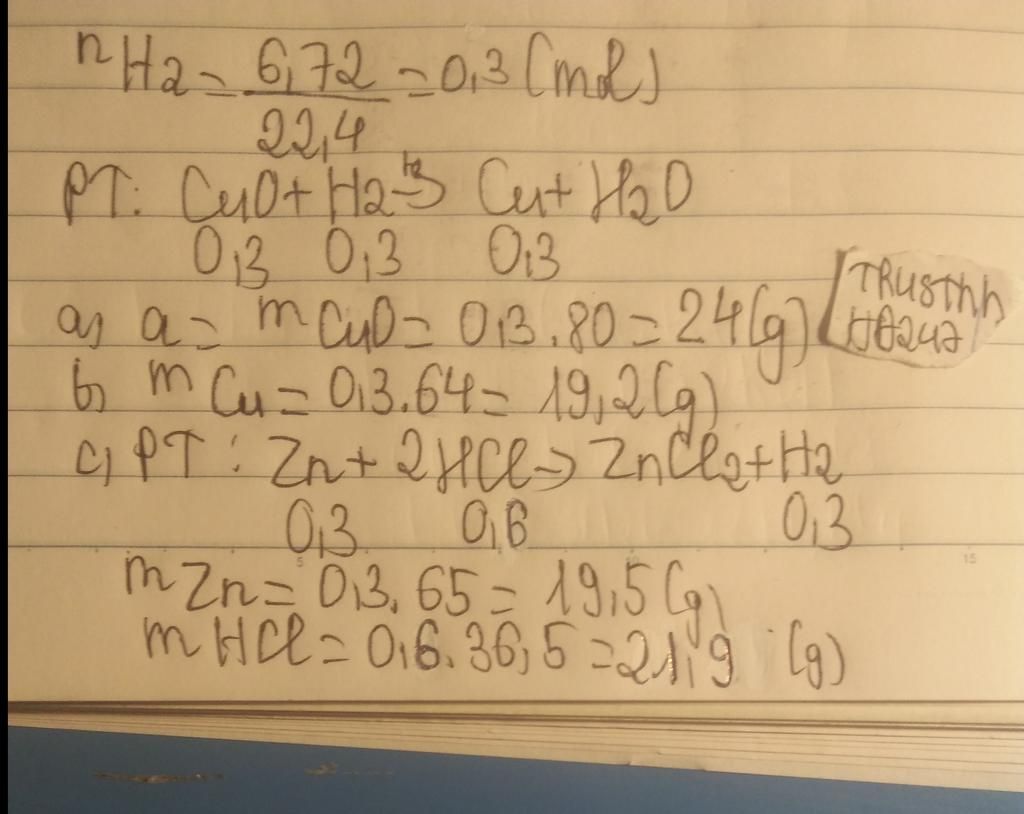 nH2 = 6,72 / 22,4 = 0,3 (mol)
PT: CuO + H2 -to-> Cu + H2O
0,3 0,3 0,3
a, a = mCuO = 0,3.80 = 24 (g)
b, mCu = 0,3.64 = 19,2 (g)
c, PT: Zn + 2HCl -> ZnCl2 + H2
0,3 0,6 0,3
mZn = 0,3.65 = 19,5 (g)
mHCl = 0,6.36,5 = 21,9 (g)
15